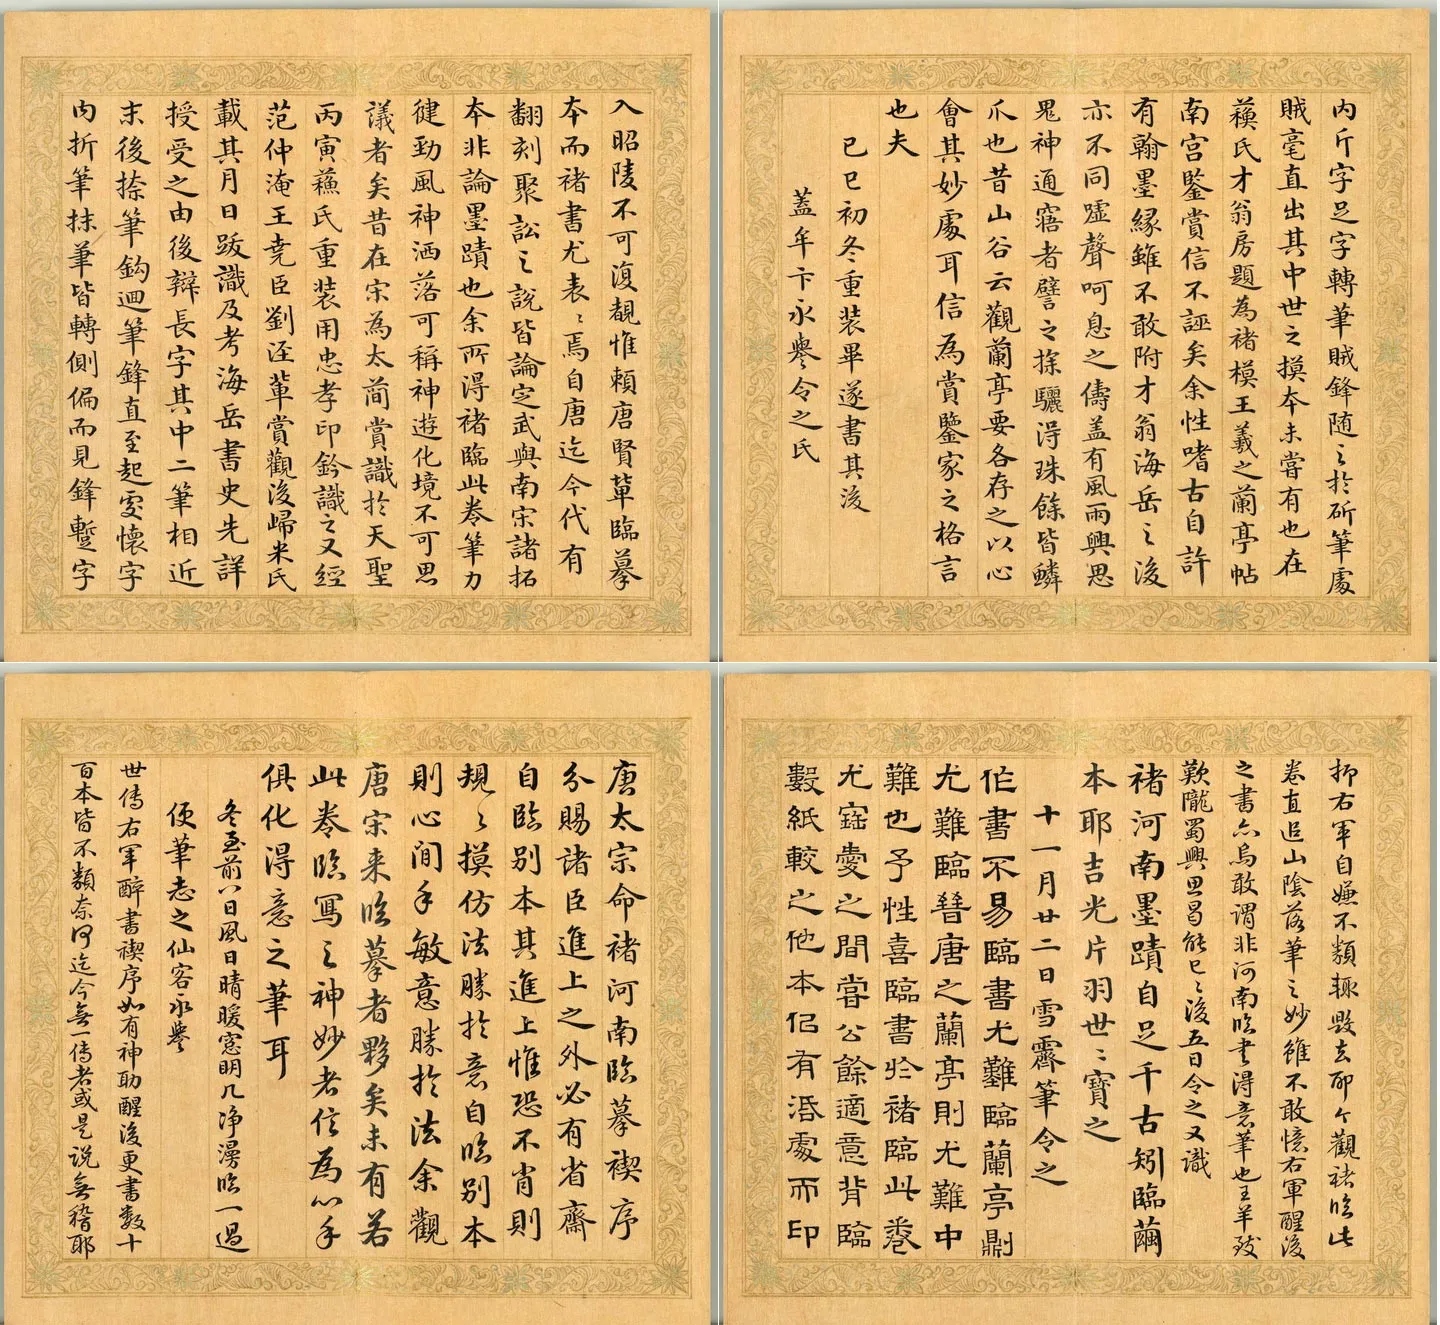 入昭陵不可復覩惟賴唐賢葦臨摹
本而褚書尤表〻焉自唐迄今代有
翻刻聚訟之說皆論定武與南宋諸拓
本非論墨蹟也余所得褚臨此卷筆力
健勁風神洒落可稱神遊化境不可思
議者矣昔在宋為太簡賞識於天聖
丙寅蘓氏重裝用忠孝印鈐識之又經
范仲淹王堯臣劉涇輩賞觀後歸米氏
載其月日跋識及考海岳書史先詳
授受之由後辯長字其中二筆相近
末後捺筆鈎迴筆鋒直至起處懷字
内折筆抹筆皆轉側偏而見鋒蹔字
内斤字足字轉筆賊鋒随之於斫筆處
賊毫直出其中世之摸本未嘗有也在
蘓氏才翁房題為褚模王羲之蘭亭帖
南宮鑒賞信不誣矣余性嗜古自許
有翰墨緣雖不敢附才翁海岳之後
亦不同噓聲呵息之儔盖有風雨興思
鬼神通寤者譬之探驪得珠餘皆鱗
爪也昔山谷云觀蘭亭要各存之以心
會其妙處耳信為賞鑒家之格言
也夫
己巳初冬重装畢遂書其後
蓋牟卞永譽令之氏
唐太宗命褚河南臨摹禊序
分賜諸臣進上之外必有省齋
自臨別本其進上惟恐不肖則
規〻摸仿法勝於意自臨別本
則心閒手敏意勝於法余觀
唐宋来臨摹者夥矣未有若
此卷臨寫之神妙者信為心手
俱化得意之筆耳
冬至前八日風日晴暖窓明几净漫臨一過
便筆志之仙客永譽
世傳右軍醉書禊序如有神助醒後更書數十
百本皆不類奈何迄今無一傳者或是說無稽耶
抑右軍自嫌不類輒毀去耶今觀褚臨此
卷直追山陰落筆之妙雖不敢憶右軍醒後
之書亦烏敢謂非河南臨書得意筆也王羊殘
歎隴蜀興思曷能已〻後五日令之又識
褚河南墨蹟自足千古矧臨繭
本耶吉光片羽世〻寶之
十一月廿二日雪霽筆令之
作書不易臨書尤難臨蘭亭則
尤難臨晉唐之蘭亭則尤難中
難也予性喜臨書於褚臨此卷
尤寤愛之間嘗公餘適意背臨
數紙較之他本侣有㴽處而印